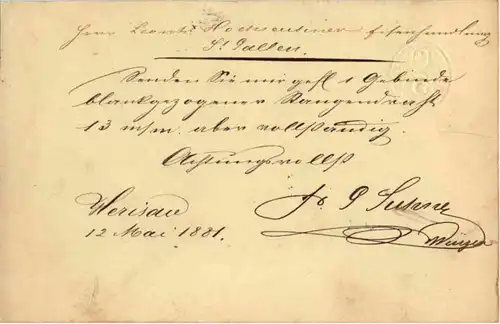 Herrn Leonh. Hochreutiner Eisenhandlung
St. Gallen.
Senden Sie mir gefl 1 Gebunde
blankgezogener Stangendraht
13 m/m. aber vollständig.
Achtungsvollst
Herisau
12 Mai 1881.